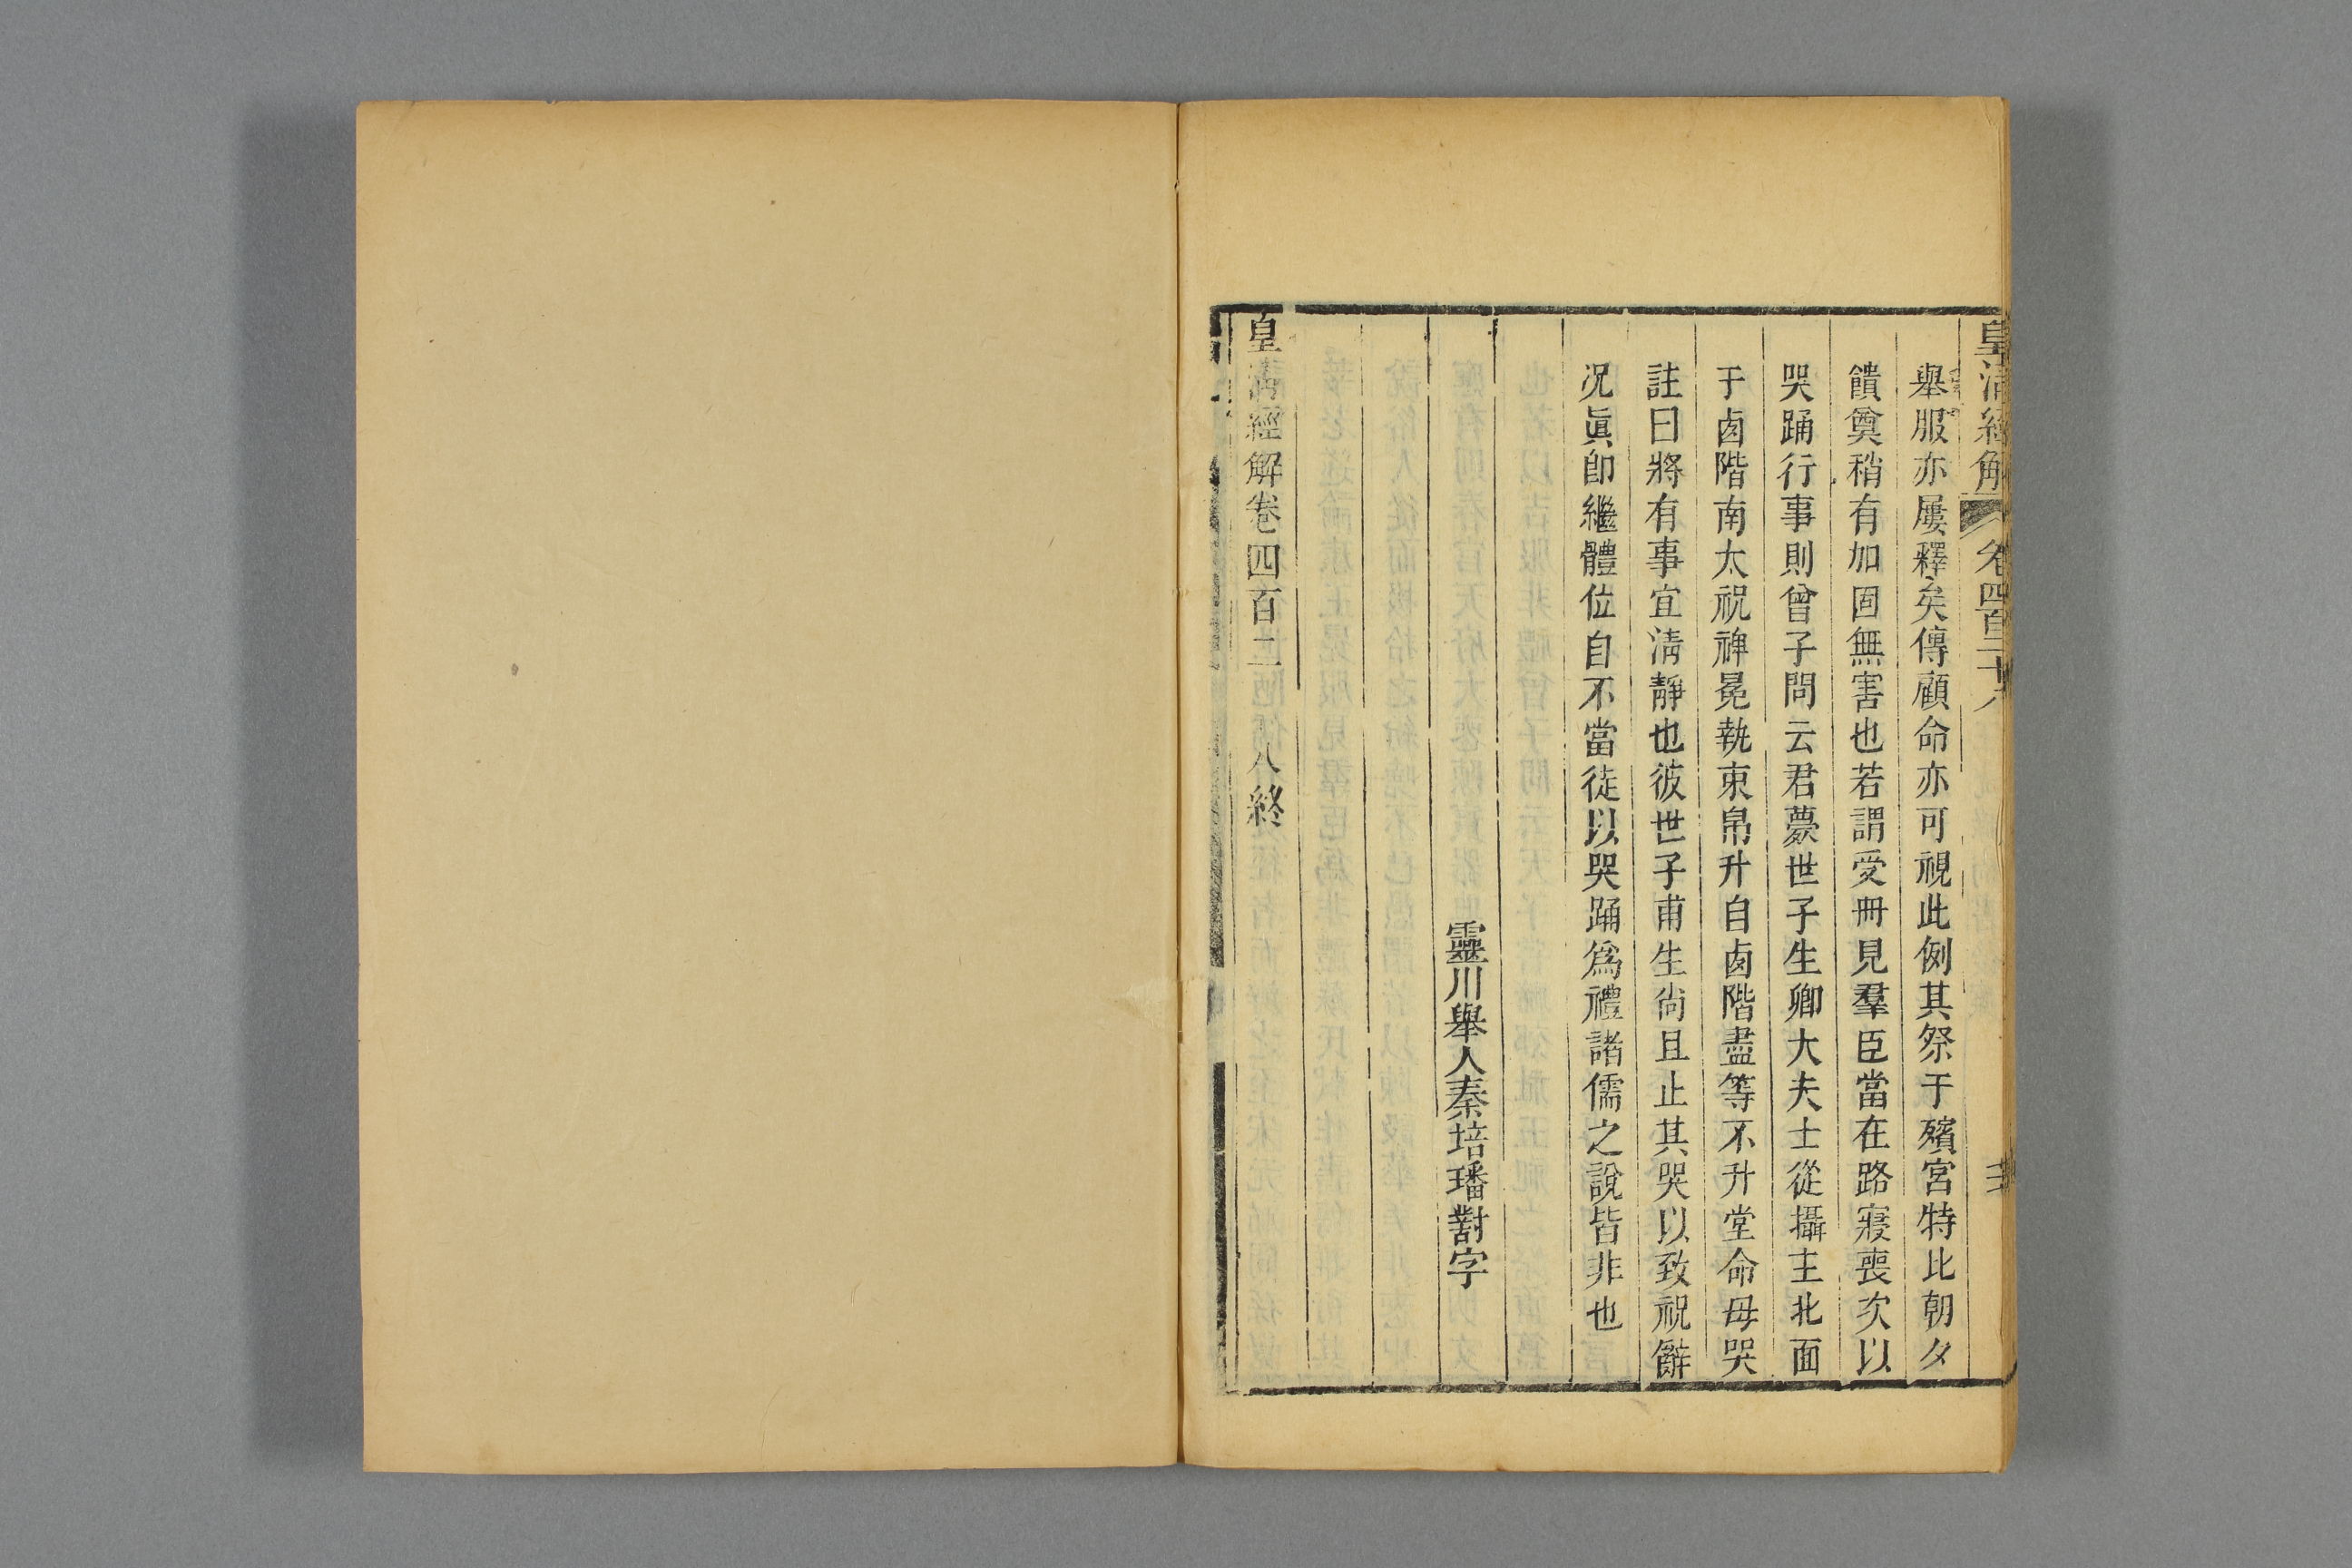 皇清經解
卷四百二十八
舉服亦屢釋矣傳顧命亦可視此例其祭于殯宮特比朝夕
饋奠稍有加固無害也若謂受冊見羣臣當在路寢喪次以
哭踊行事則曾子問云君薨世子生卿大夫士從攝主北面
于西階南太祝裨冕執束帛升自西階盡等不升堂命毋哭
註曰將有事宜清靜也彼世子甫生尙且止其哭以致祝辭
况眞卽繼體位自不當徒以哭踊爲禮諸儒之說皆非也
靈川舉人秦培璠對字
皇清經解卷四百二 八終